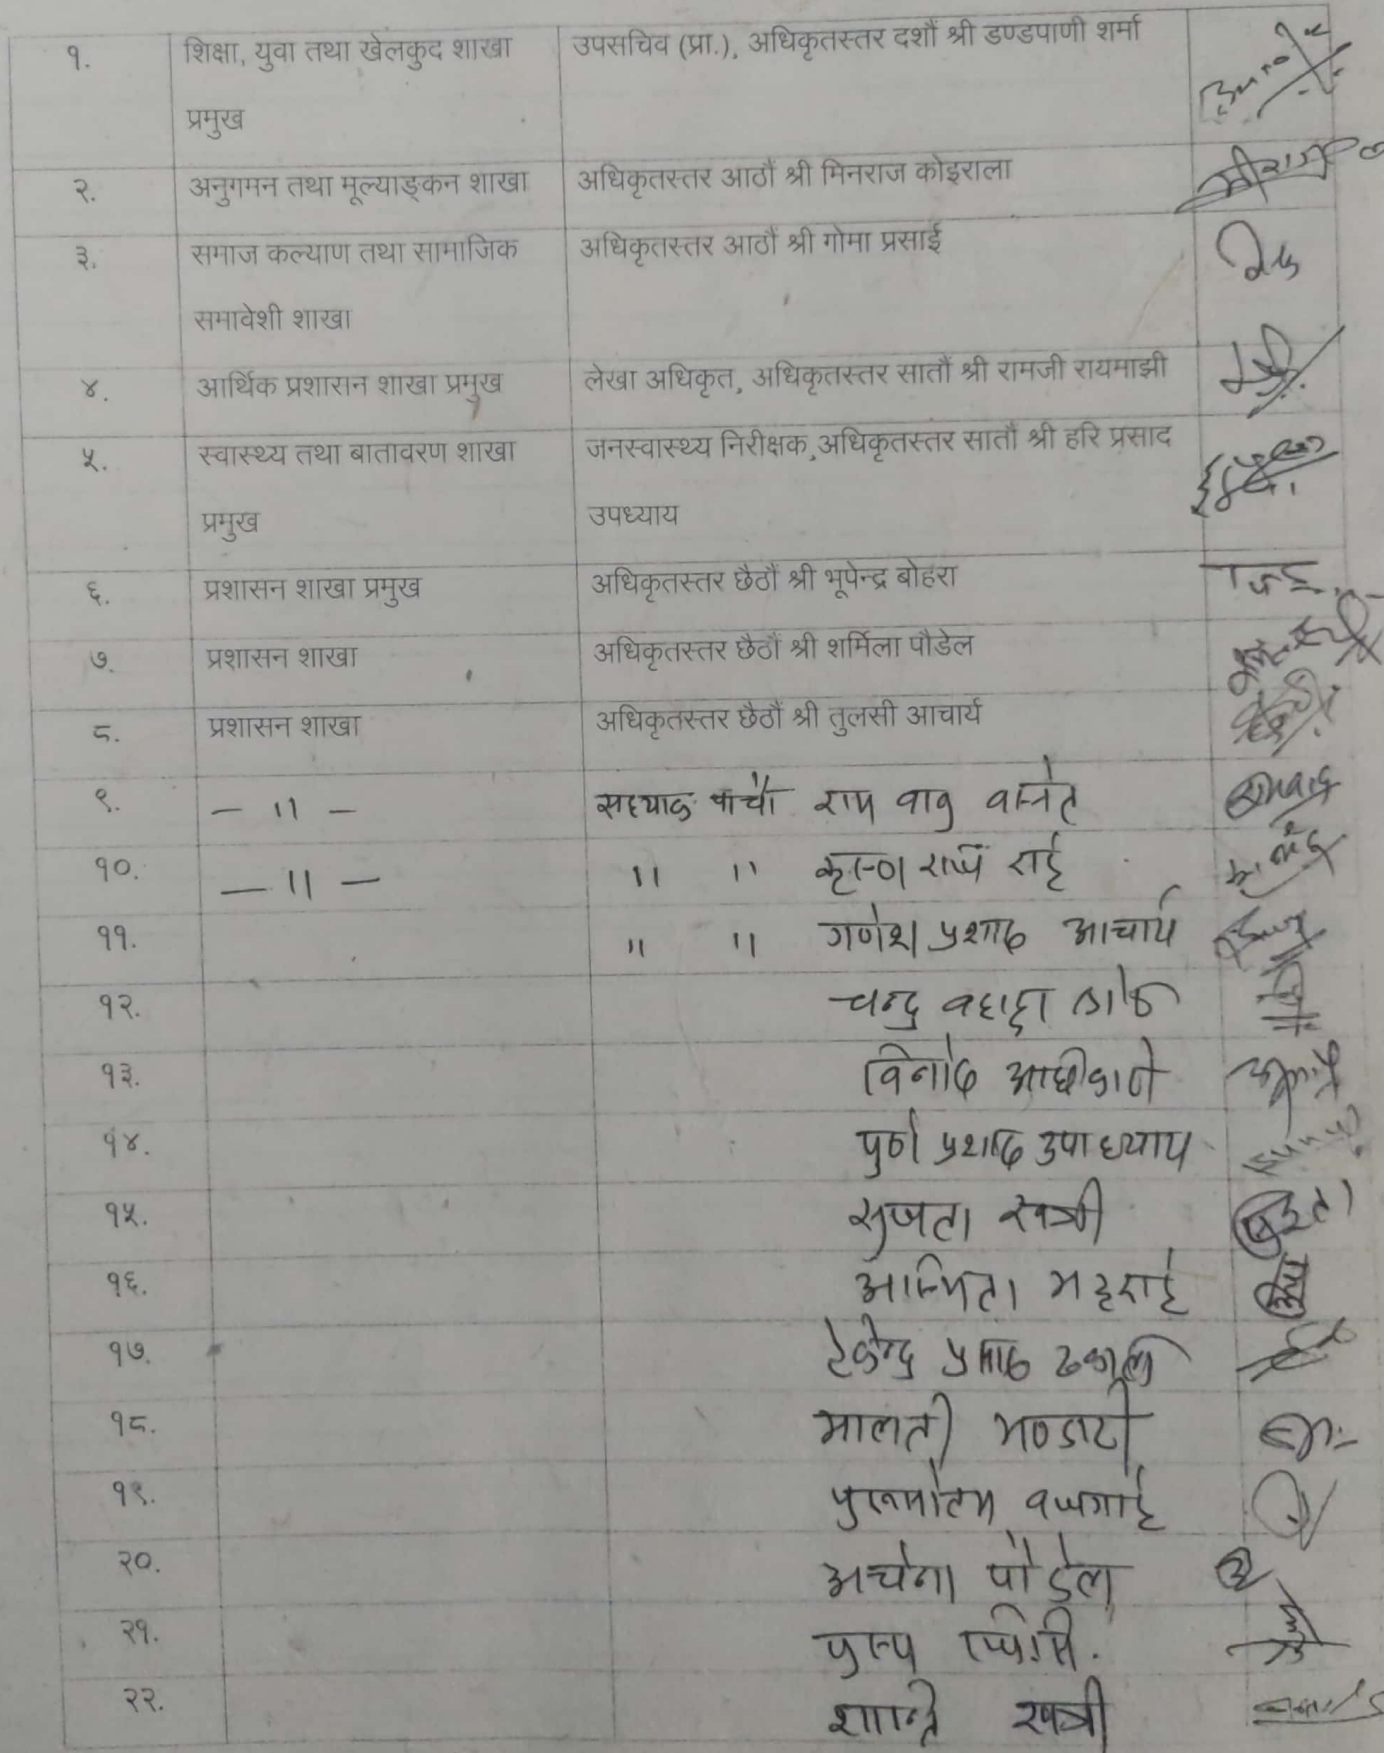 १. शिक्षा, युवा तथा खेलकुद शाखा उपसचिव (प्रा.), अधिकृतस्तर दशौं श्री डण्डपाणी शर्मा
प्रमुख
२. अनुगमन तथा मूल्याङ्कन शाखा अधिकृतस्तर आठौं श्री मिनराज कोइराला
३. समाज कल्याण तथा सामाजिक अधिकृतस्तर आठौं श्री गोमा प्रसाई
समावेशी शाखा
४. आर्थिक प्रशासन शाखा प्रमुख लेखा अधिकृत, अधिकृतस्तर सातौं श्री रामजी रायमाझी
५. स्वास्थ्य तथा बातावरण शाखा जनस्वास्थ्य निरीक्षक,अधिकृतस्तर सातौं श्री हरि प्रसाद
प्रमुख उपध्याय
६. प्रशासन शाखा प्रमुख अधिकृतस्तर छैठौं श्री भूपेन्द्र बोहरा
७. प्रशासन शाखा अधिकृतस्तर छैठौं श्री शर्मिला पौडेल
८. प्रशासन शाखा अधिकृतस्तर छैठौं श्री तुलसी आचार्य
९. – " – पाचौ राम वावु वस्नेत
१०. – " – " " कृष्ण राई
११. " " गणेश प्रशाद आचार्य
१२. चन्द्र वहादुर
१३. विनोद अधीकारी
१४. पुर्ण प्रशाद उपाध्याय
१५. सुजता खत्री
१६. अस्मिता भट्टराई
१७. टेकेन्द्र प्रसाद ढकाल
१८. मालती भण्डारी
१९. पुरुषोतम वजगाई
२०. अर्चना पौडेल
२१. पुष्प
२२. शान्ति खत्री